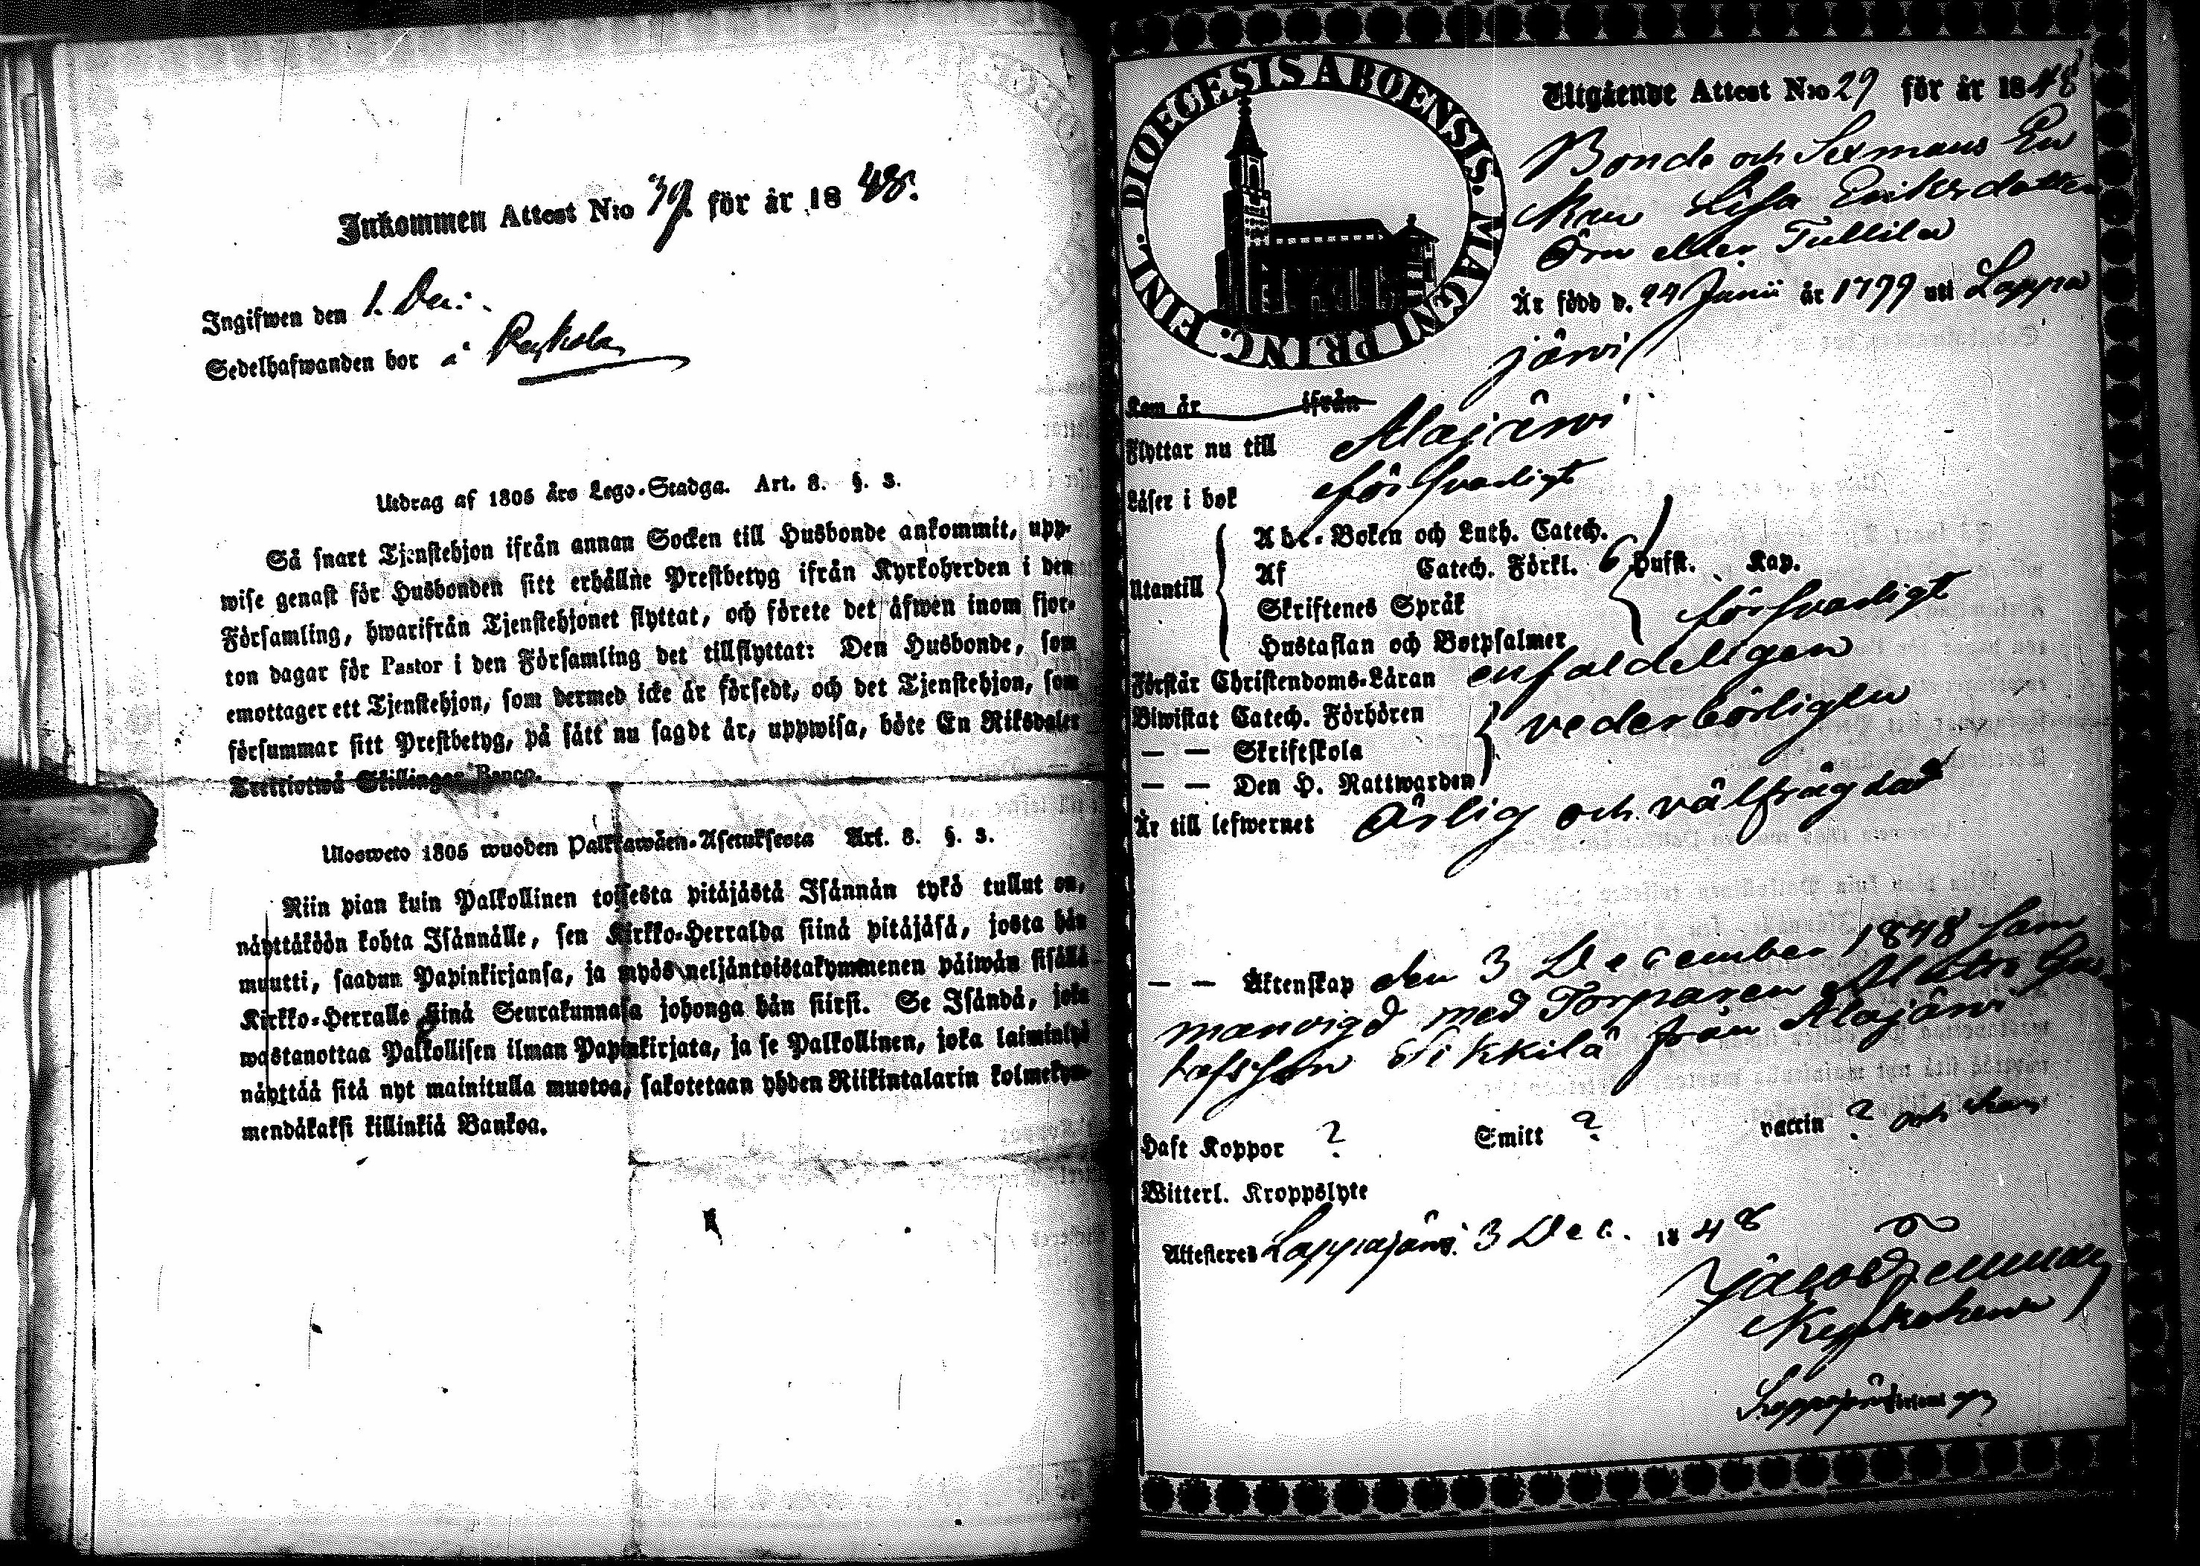 Inkommen Attest N:o 39 för år 1848.
Ingifwen den 1. Dec:
Sedelhafwanden bor å
Utdrag af 1805 års Lego-Stadga. Art. 8. §. 3.
Så snart Tjenstehjon ifrån annan Socken till Husbonde ankommit, upp-
wise genast för Husbonden sitt erhållne Prestbetyg ifrån Kyrkoherden i den
Församling, hwarifrån Tjenstehjonet flyttat, och förete det äfwen inom fjor-
ton dagar för Pastor i den Församling det tillflyttat: Den Husbonde, som
emottager ett Tjenstehjon, som dermed icke är försedt, och det Tjenstehjon, som
försummar sitt Prestbetyg, på sätt nu sagdt är, uppwisa, böte En Riksdaler
Trettiotwå Skillingar Banco.
Uloswето 1805 wuoden Palkkawäen-Asetuksesta Art. 8. §. 3.
Niin pian kuin Palkollinen toisesta pitäjästä Isännän tykö tullut on,
näyttäköön kohta Isännälle, sen Kirkko-Herralda siinä pitäjäsä, josta hän
muutti, saadun Papinkirjansa, ja myös neljäntoistakymmenen päiwän sisällä
Kirkko-Herralle siinä Seurakunnasa johonga hän siirsi. Se Isändä, joka
wastanottaa Palkollisen ilman Papinkirjata, ja se Palkollinen, joka laiminlyö
näyttää sitä nyt mainitulla muotoa, sakotetaan yhden Riikintalarin kolmekym-
mendäkaksi killinkiä Bankoa.
DIOECESIS ABOENSIS. MAGNI PRINC. FINL.
Utgående Attest N:o 29 för år 1848
Bonde och Sexmans En
kan Lisa Eriksdotter
Örn eller Tullila
Är född d. 24 Junii år 1799 uti Lappa
järvi
Kom år ifrån
Flyttar nu till Alajärvi
Läser i bok försvarligt
Utantill
Abc-Boken och Luth. Catech.
Af Catech. Förkl. 6 Hufst. Kap.
Skriftenes Språk
försvarligt
Hustaflan och Botpsalmer
Förstår Christendoms-Läran enfaldeligen
Biwistat Catech. Förhören
vederbörligen
— — Skriftskola
— — Den H. Nattwarden
Är till lefwernet Ärlig och välfrägdad
— — Äktenskap den 3 December 1848 sam
manvigd med Torparen Matts Gus
tafsson Sikkilä från Alajärvi
Haft Koppor ? Smitt ? vaccin ? och
Witterl. Kroppslyte
Attesteres Lappajärvi 3 Dec. 1848
Jacob
Kyrkoherde